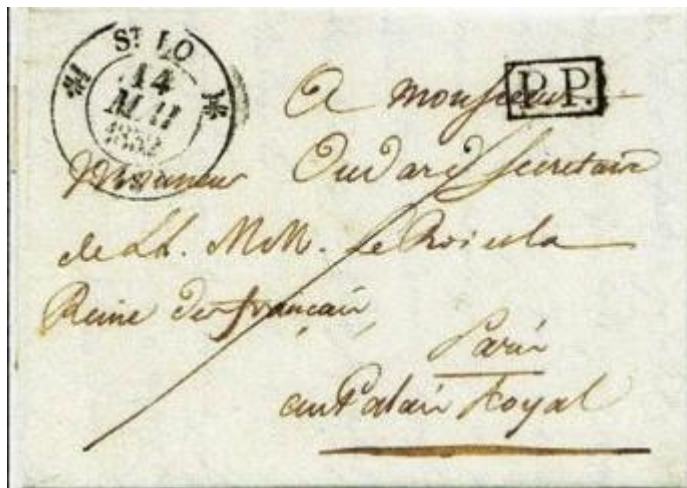 ST LO
14
MAI
1832
P.P.
A Monsieur
Monsieur Oudard Secretaire
de LL. MM. le Roi et la
Reine des français
Paris
au Palais Royal